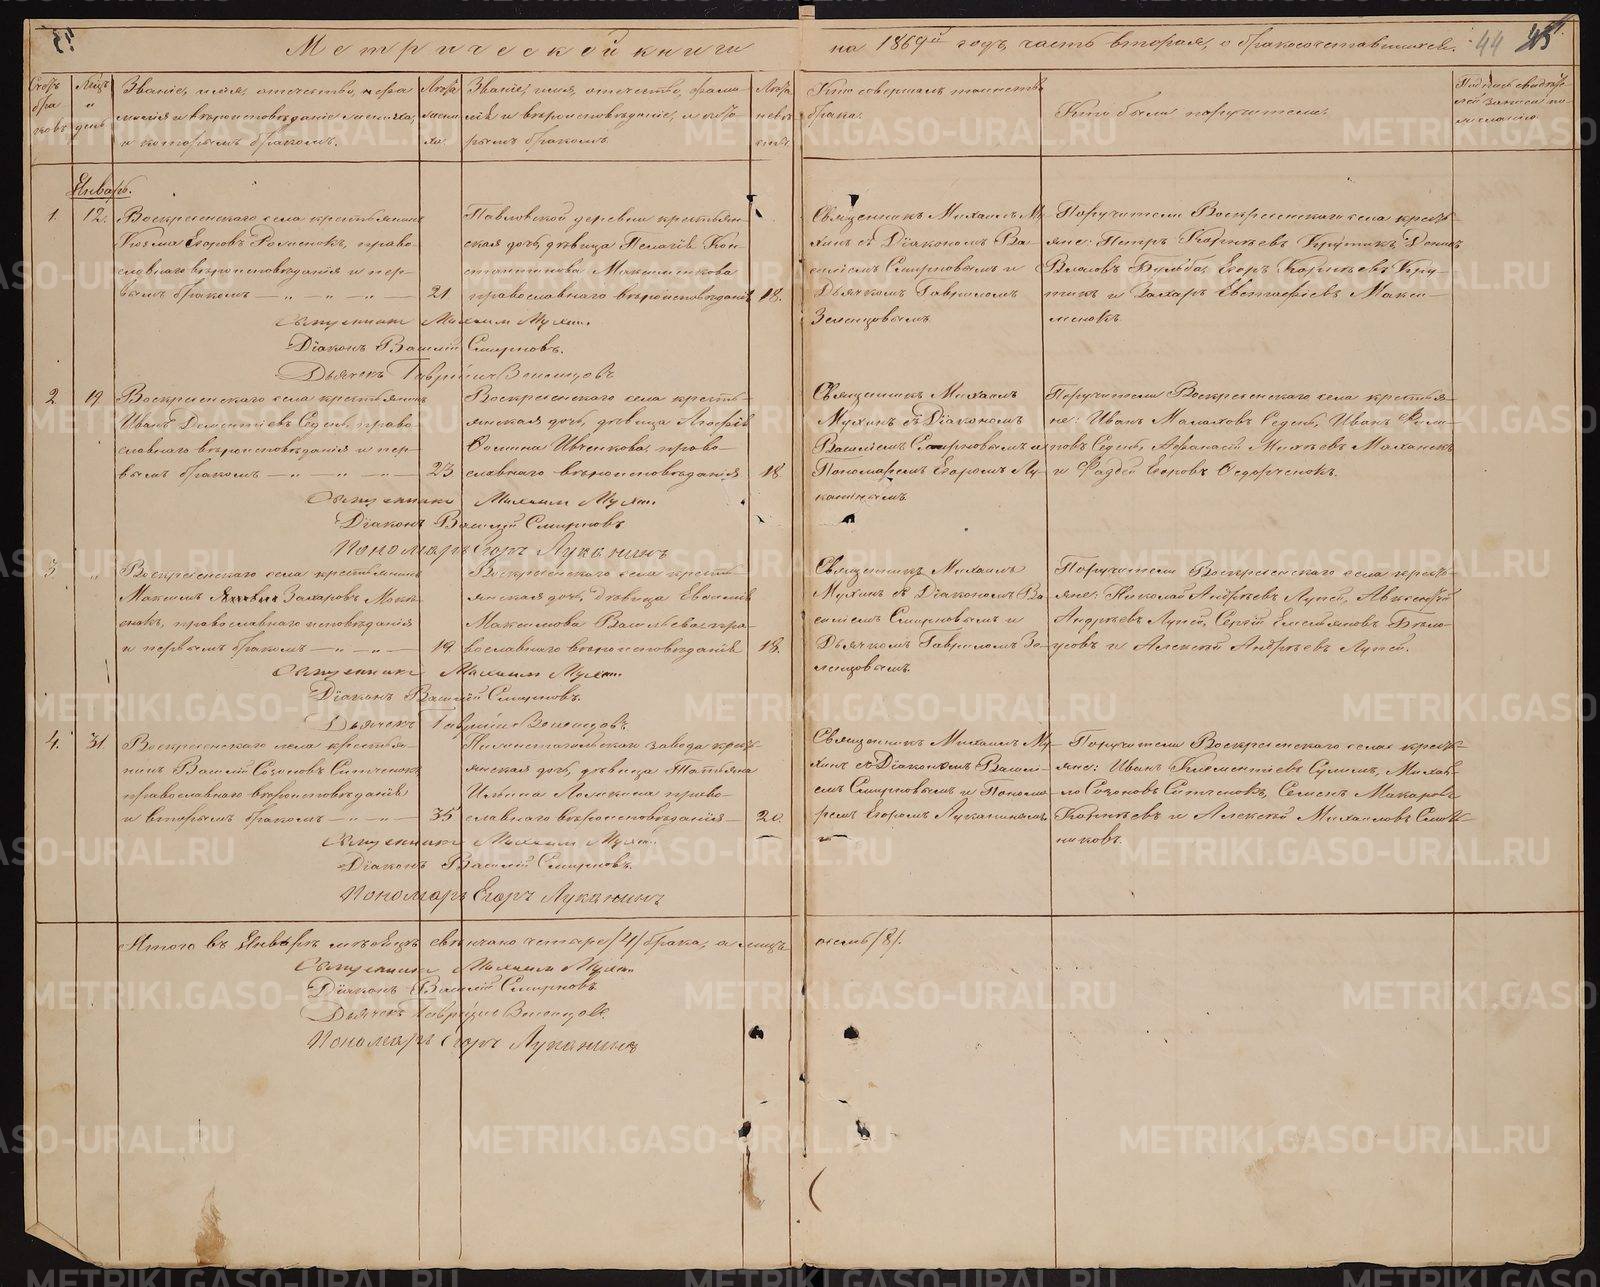 Метрической книги на 1869й годъ, часть вторая, о бракосочетавшихся. 44 45
Счетъ браковъ
Мѣсяцъ и день
Званіе, имя, отечество, фамилія и вѣроисповѣданіе жениха, и которымъ бракомъ.
Лѣта жениха.
Званіе, имя, отечество, фамилія и вѣроисповѣданіе, и которымъ бракомъ.
Лѣта невѣсты
Кто совершалъ таинство
брака.
Кто были поручители.
Январь.
1. 12.
Воскресенскаго села крестьянинъ
Козма Егоровъ право-
славнаго вѣроисповѣданія и пер-
вымъ бракомъ — „ — „ — 21
Павловской деревни крестьян-
ская дочь, дѣвица Пелагія Кон-
стантинова Максименкова
православнаго вѣроисповѣданія 18.
Священникъ Михаилъ Му-
хинъ съ Діакономъ Ва-
силіемъ Смирновымъ и
Дьячкомъ Гавриломъ
Зеленцовымъ.
Поручители Воскресенскаго села кресть-
яне: Петръ Корнѣевъ Крутикъ, Денисъ
Власовъ Бульба, Егоръ Корнѣевъ Кру-
тикъ и Захаръ Макси-
менокъ.
Священникъ Михаилъ Мухинъ.
Діаконъ Василій Смирновъ.
Дьячекъ Гавріилъ Зеленцовъ
2 19
Воскресенскаго села крестьянинъ
Иванъ Дементіевъ Седень, право-
славнаго вѣроисповѣданія и пер-
вымъ бракомъ — „ — „ — 23
Воскресенскаго села кресть-
янская дочь, дѣвица
Фомина Ивченкова, право-
славнаго вѣроисповѣданія 18.
Священникъ Михаилъ
Мухинъ съ Діакономъ
Василіемъ Смирновымъ и
Пономаремъ Егоромъ Лу-
канинымъ.
Поручители Воскресенскаго села крестья-
не: Иванъ Малаховъ Седень, Иванъ Фили-
повъ Седень, Афанасій
и Фаддей Егоровъ Федорченокъ.
Священникъ Михаилъ Мухинъ.
Діаконъ Василій Смирновъ
Пономарь Егоръ Луканинъ
3 „
Воскресенскаго села крестьянинъ
Максимъ Захаровъ
православнаго исповѣданія
и первымъ бракомъ — „ — „ — 19
Воскресенскаго села кресть-
янская дочь, дѣвица Евдокія
Максимова Васильева, пра-
вославнаго вѣроисповѣданія 18.
Священникъ Михаилъ
Мухинъ съ Діакономъ Ва-
силіемъ Смирновымъ и
Дьячкомъ Гавриломъ Зе-
ленцовымъ.
Поручители Воскресенскаго села кресть-
яне: Николай Андрѣевъ Лупей, Авксентій
Андрѣевъ Лупей, Сергій Емельяновъ Бѣло-
усовъ и Алексѣй Андрѣевъ Лупей.
Священникъ Михаилъ Мухинъ.
Діаконъ Василій Смирновъ.
Дьячекъ Гавріилъ Зеленцовъ
4. 31.
Воскресенскаго села крестья-
нинъ Василій Созоновъ Ситченокъ
православнаго вѣроисповѣданія
и вторымъ бракомъ — „ — „ — 35
завода кресть-
янская дочь, дѣвица Татьяна
Ильина право-
славнаго вѣроисповѣданія — 20.
Священникъ Михаилъ Му-
хинъ съ Діакономъ Васили-
емъ Смирновымъ и Понома-
ремъ Егоромъ Луканинымъ.
Поручители Воскресенскаго села кресть-
яне: Иванъ Климентіевъ Сулимъ, Михай-
ло Созоновъ Ситченокъ, Семенъ Макаровъ
Корнѣевъ и Алексѣй Михайловъ
никовъ.
Священникъ Михаилъ Мухинъ.
Діаконъ Василій Смирновъ.
Пономарь Егоръ Луканинъ
Итого въ Январѣ мѣсяцѣ свѣнчано четыре /4/ брака, а лицъ восемь /8/.
Священникъ Михаилъ Мухинъ
Діаконъ Василій Смирновъ
Дьячекъ Гавріилъ Зеленцовъ.
Пономарь Егоръ Луканинъ
METRIKI.GASO-URAL.RU